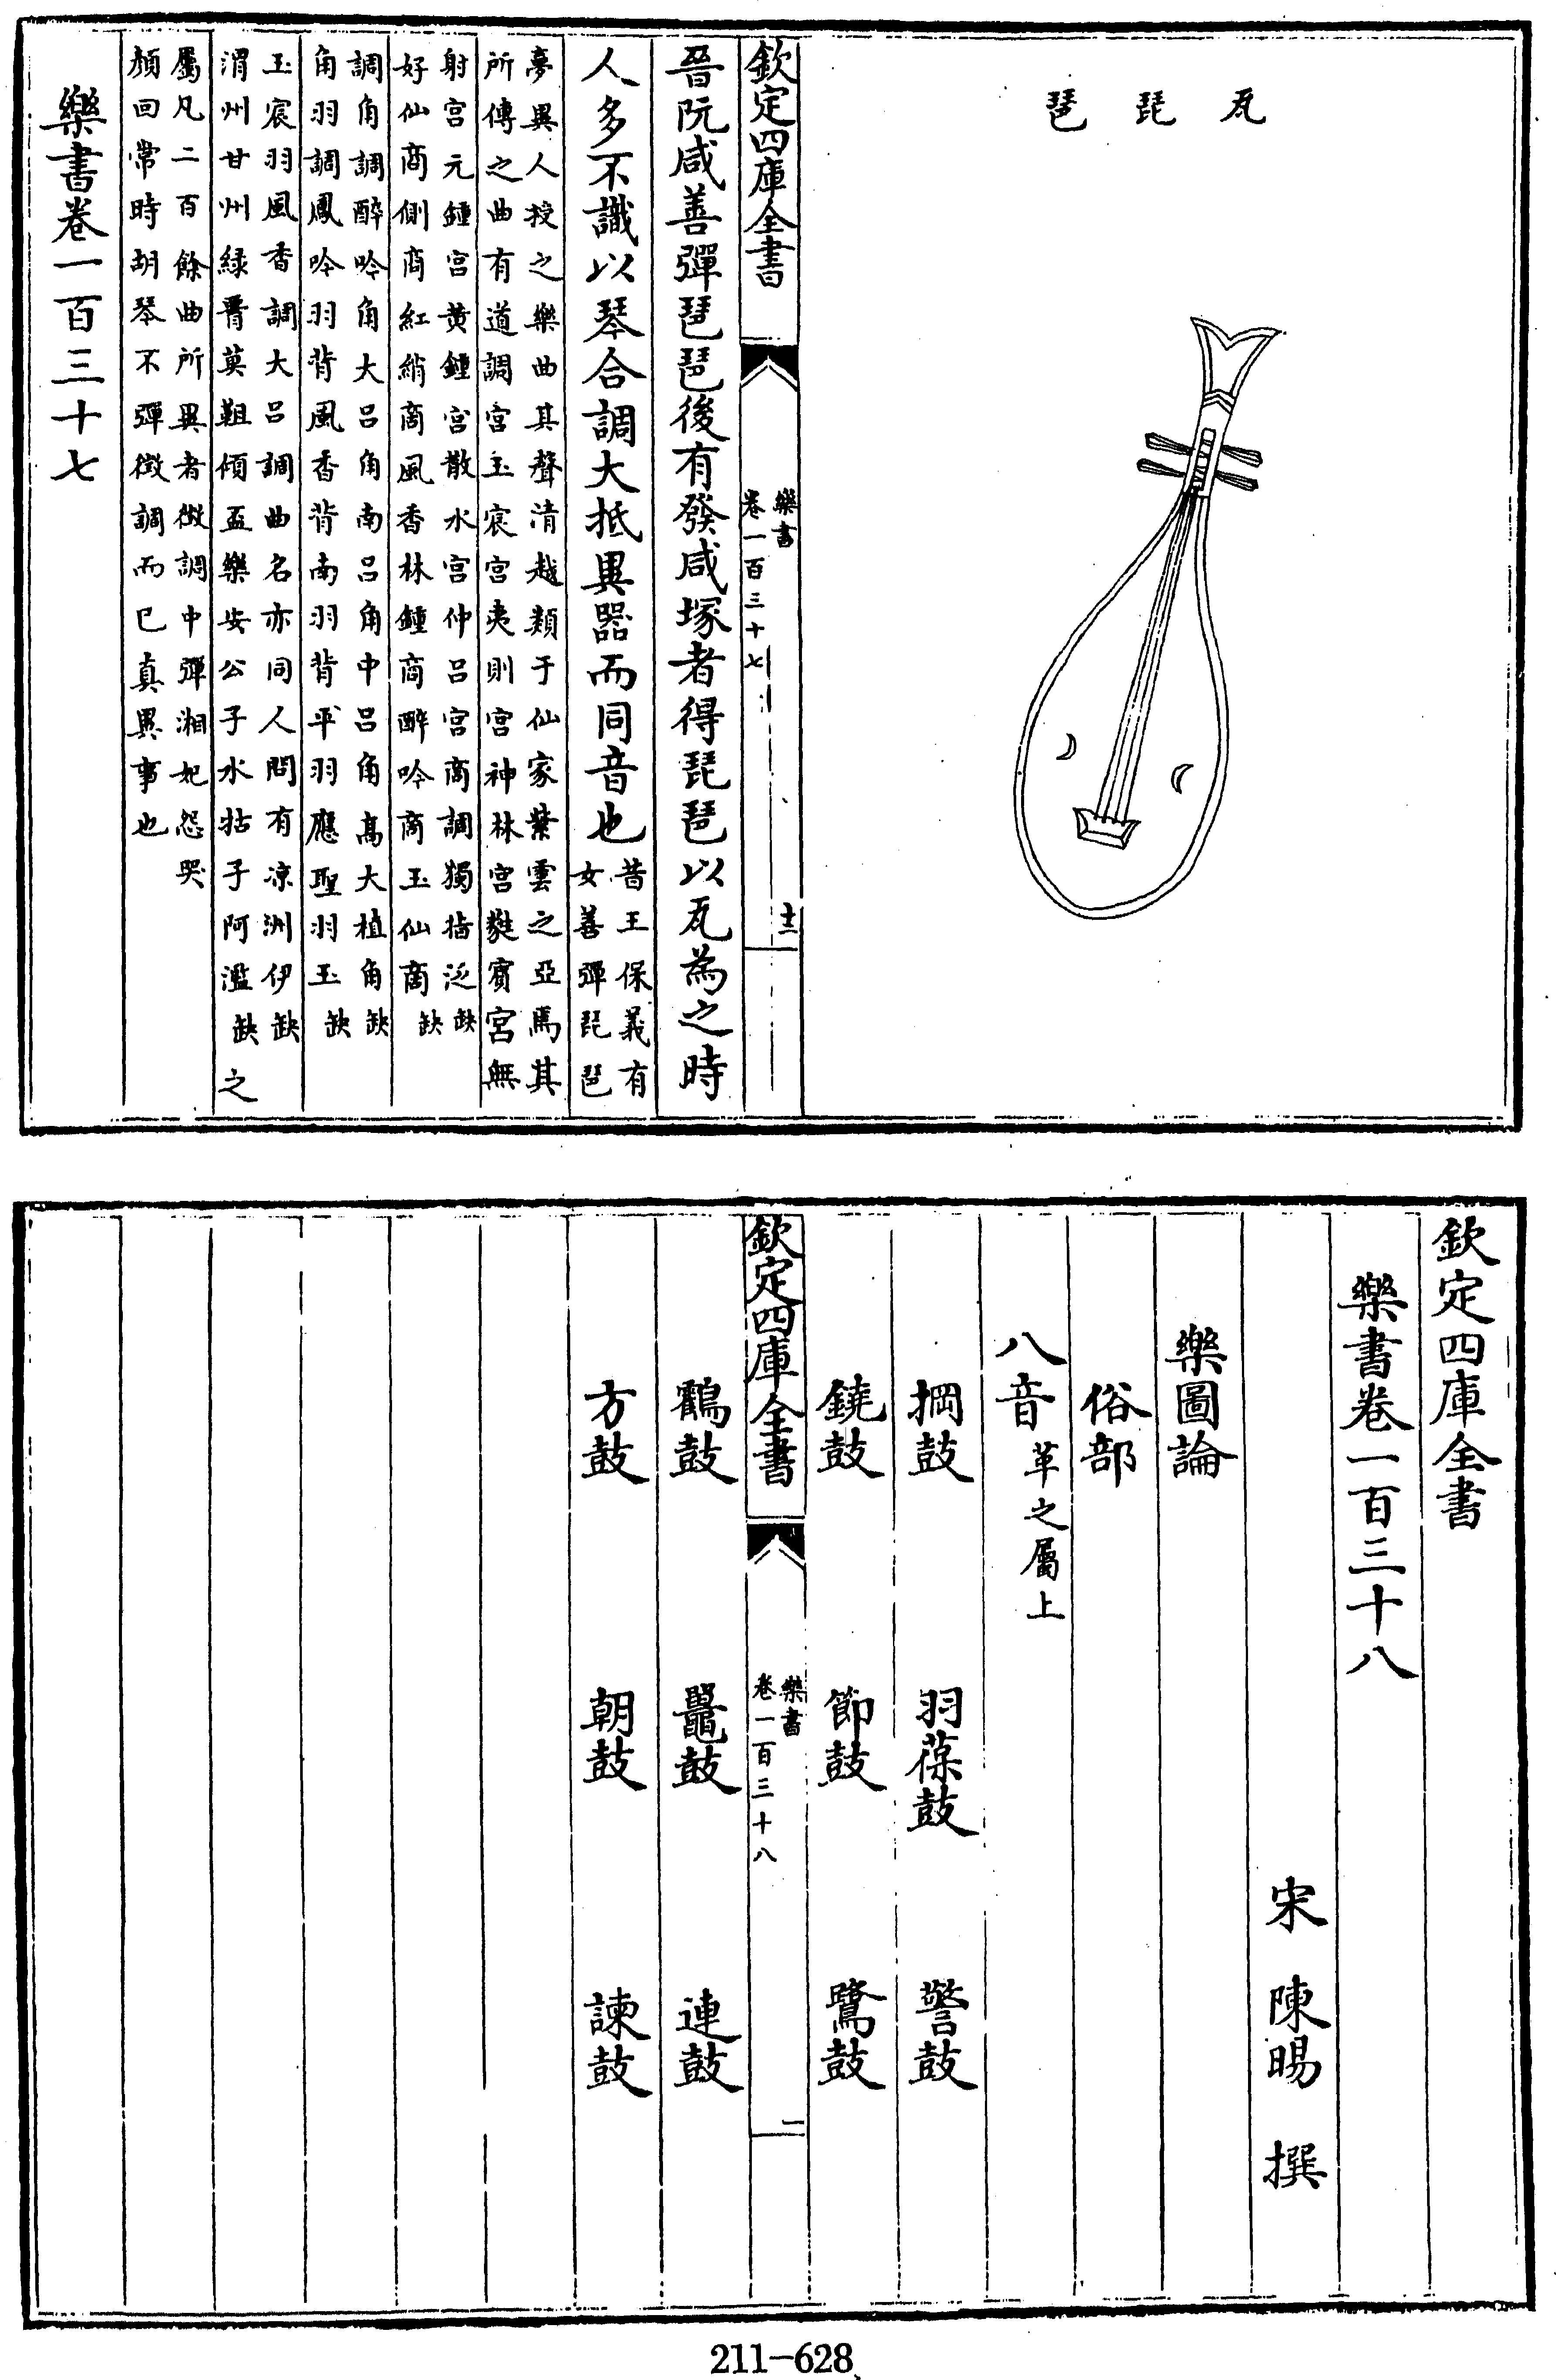 瓦琵琶
欽定四庫全書
樂書
卷一百三十七
十二
晉阮咸善彈琵琶後有發咸塚者得琵琶以瓦為之時
人多不識以琴合調大抵異器而同音也
昔王保義有
女善彈琵琶
夢異人授之樂曲其聲清越類于仙家紫雲之亞焉其
所傳之曲有道調宫玉宸宫夷則宫神林宫蕤賓宫無
射宫元鍾宫黄鍾宫散水宫仲吕宫商調獨指泛缺
好仙商側商紅綃商風香林鍾商醉吟商玉仙商缺
調角調醉吟角大吕角南吕角中吕角高大植角缺
角羽調鳳吟羽背風香背南羽背平羽應聖羽玉缺
玉宸羽風香調大吕調曲名亦同人間有凉洲伊缺
渭州甘州緑𦝫莫靼傾盃樂安公子水牯子阿濫缺之
屬凡二百餘曲所異者徴調中彈湘妃怨哭
顏回常時胡琴不彈徴調而已真異事也
樂書卷一百三十七
欽定四庫全書
樂書卷一百三十八
宋 陳暘 撰
樂圖論
俗部
八音革之屬上
掆鼓 羽葆鼓 警鼓
鐃鼓 節鼓 鷺鼓
欽定四庫全書
樂書
卷一百三十八
一
鸖鼓 鼉鼓 連鼓
方鼓 朝鼓 諫鼓
211-628